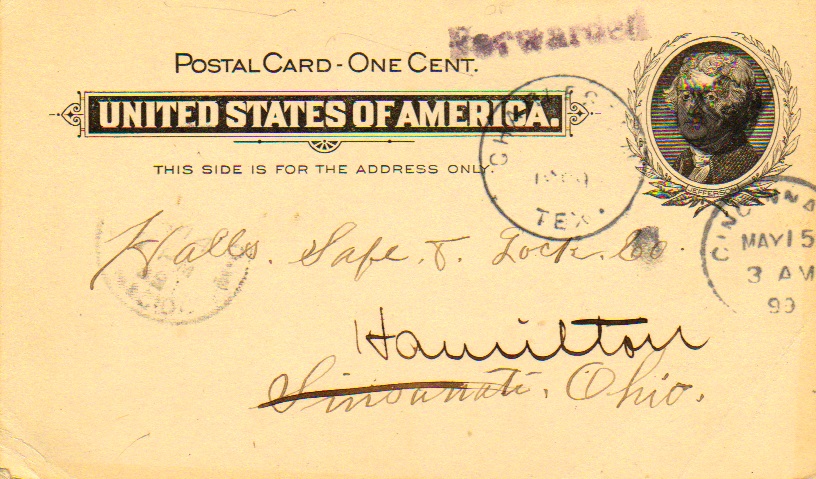 Forwarded
POSTAL CARD - ONE CENT.
UNITED STATES OF AMERICA.
THIS SIDE IS FOR THE ADDRESS ONLY.
JEFFERSON
TEX.
CINCINNA
MAY 15
3 AM
99
Halls. Safe. &. Lock. Co.
Hamilton
Sincinnati. Ohio.